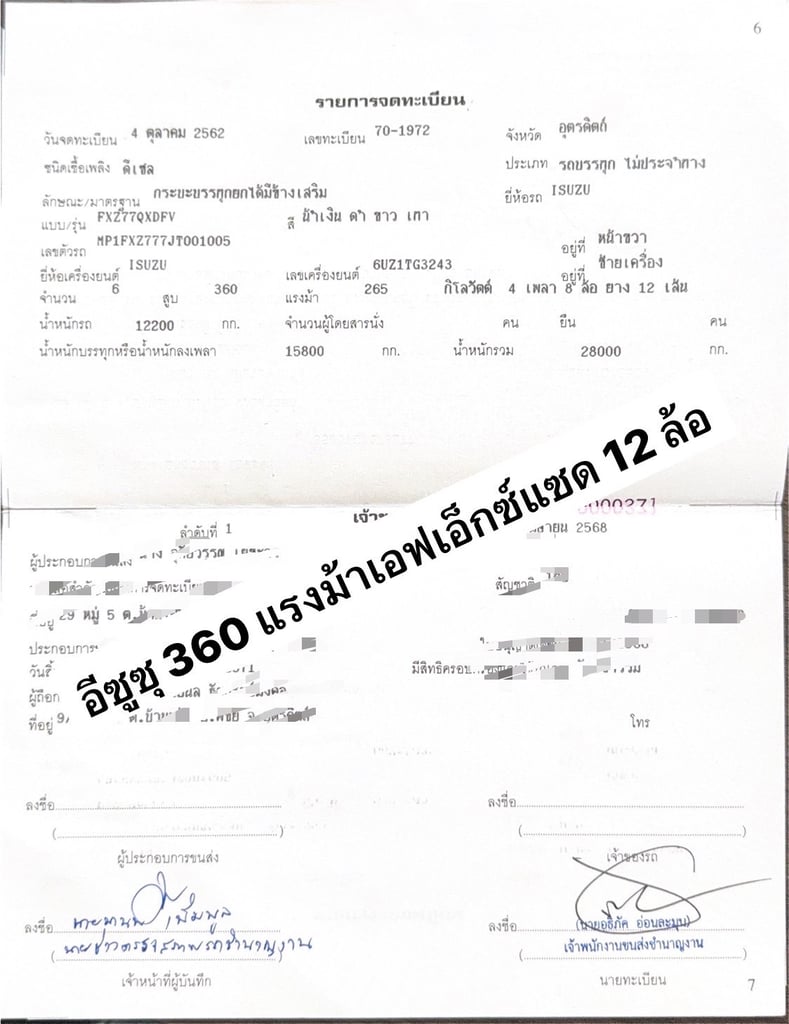 6
รายการจดทะเบียน
วันจดทะเบียน 4 ตุลาคม 2562 เลขทะเบียน 70-1972 จังหวัด อุตรดิตถ์
ชนิดเชื้อเพลิง ดีเซล ประเภท รถบรรทุก ไม่ประจำทาง
ลักษณะ/มาตรฐาน กระบะบรรทุกยกได้มีข้างเสริม ยี่ห้อรถ ISUZU
แบบ/รุ่น FXZ77QXDFV สี น้ำเงิน ดำ ขาว เทา
เลขตัวรถ MP1FXZ777JT001005 อยู่ที่ หน้าขวา
ยี่ห้อเครื่องยนต์ ISUZU เลขเครื่องยนต์ 6UZ1TG3243 อยู่ที่ ซ้ายเครื่อง
จำนวน 6 สูบ 360 แรงม้า 265 กิโลวัตต์ 4 เพลา 8 ล้อ ยาง 12 เส้น
น้ำหนักรถ 12200 กก. จำนวนผู้โดยสารนั่ง คน ยืน คน
น้ำหนักบรรทุกหรือน้ำหนักลงเพลา 15800 กก. น้ำหนักรวม 28000 กก.
อีซูซุ 360 แรงม้าเอฟเอ็กซ์แซด 12 ล้อ
ลำดับที่ 1 2568
ผู้ประกอบการ
การจดทะเบียน สัญชาติ
ที่อยู่ 29 หมู่ 5 ต.
ประกอบการ
วันที่ มีสิทธิครอบ
ผู้ถือ
ที่อยู่ 9/ โทร
ลงชื่อ ลงชื่อ
( ) ( )
ผู้ประกอบการขนส่ง เจ้าของรถ
ลงชื่อ ลงชื่อ
(นายอธิภัค อ่อนละมุน)
นายช่างตรวจสภาพรถชำนาญงาน เจ้าพนักงานขนส่งชำนาญงาน
เจ้าหน้าที่ผู้บันทึก นายทะเบียน
7